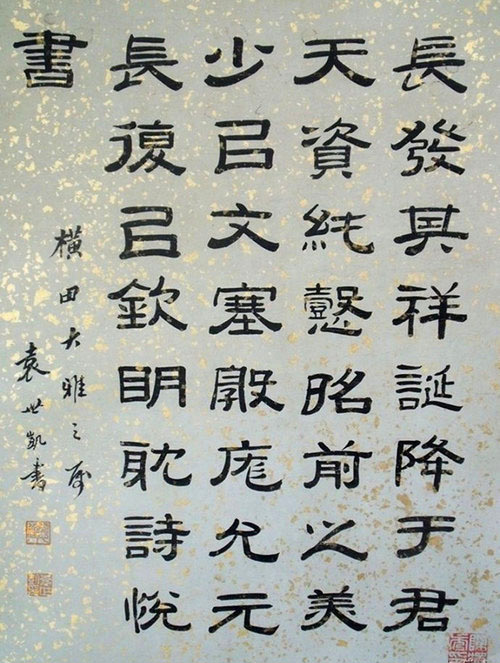 長發其祥誕降于君
天資純懿昭前之美
少㠯文塞敦庬允元
長復㠯欽明耽詩悅
書
橫田大雅之屬
袁世凱書